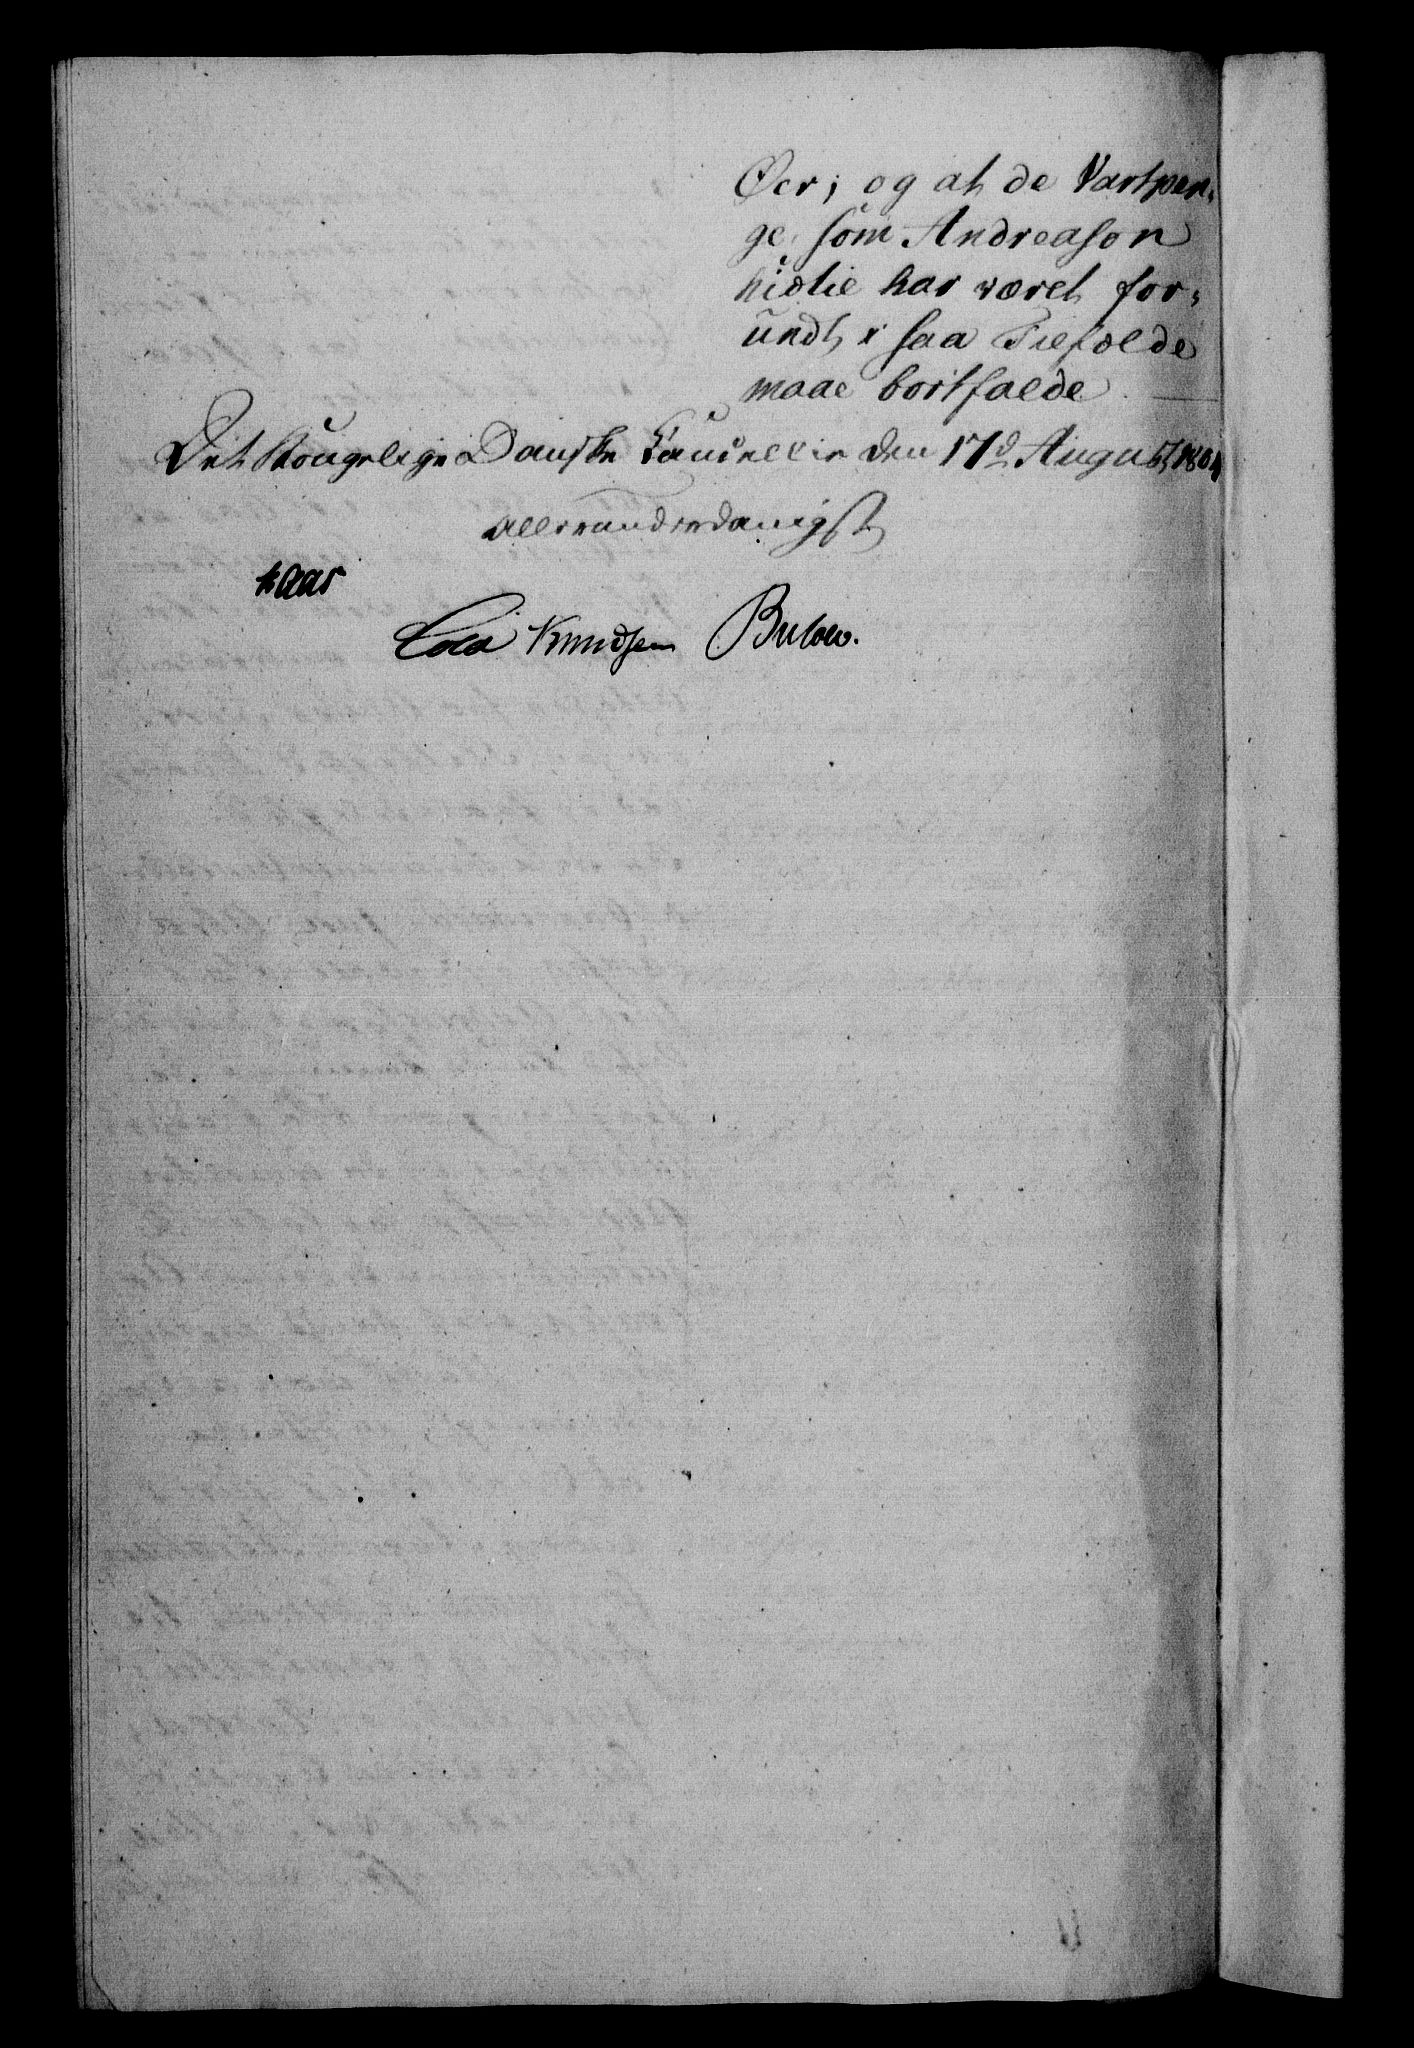 Øer; og at de Vartpen-
ge, som Andreason
hidtil har været for-
undt, i saa Tilfælde
maae bortfalde.
Det Kongelige Danske Cancellie den 17d August 1804
allerunderdanigst
Kaas
Cold Knudsen Bulow.